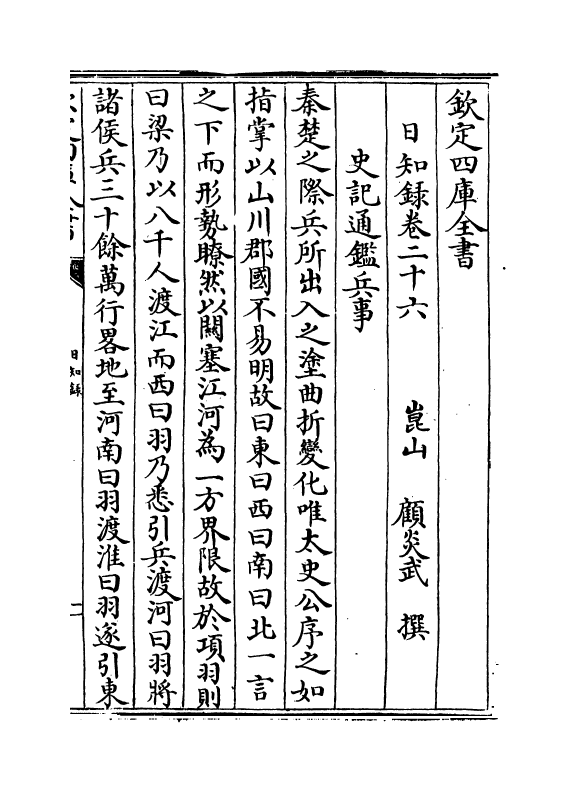 欽定四庫全書
日知錄卷二十六 崑山 顧炎武 撰
史記通鑑兵事
秦楚之際兵所出入之塗曲折變化唯太史公序之如
指掌以山川郡國不易明故曰東曰西曰南曰北一言
之下而形勢瞭然以關塞江河為一方界限故於項羽則
曰梁乃以八千人渡江而西曰羽乃悉引兵渡河曰羽將
諸侯兵三十餘萬行畧地至河南曰羽渡淮曰羽遂引東
日知錄